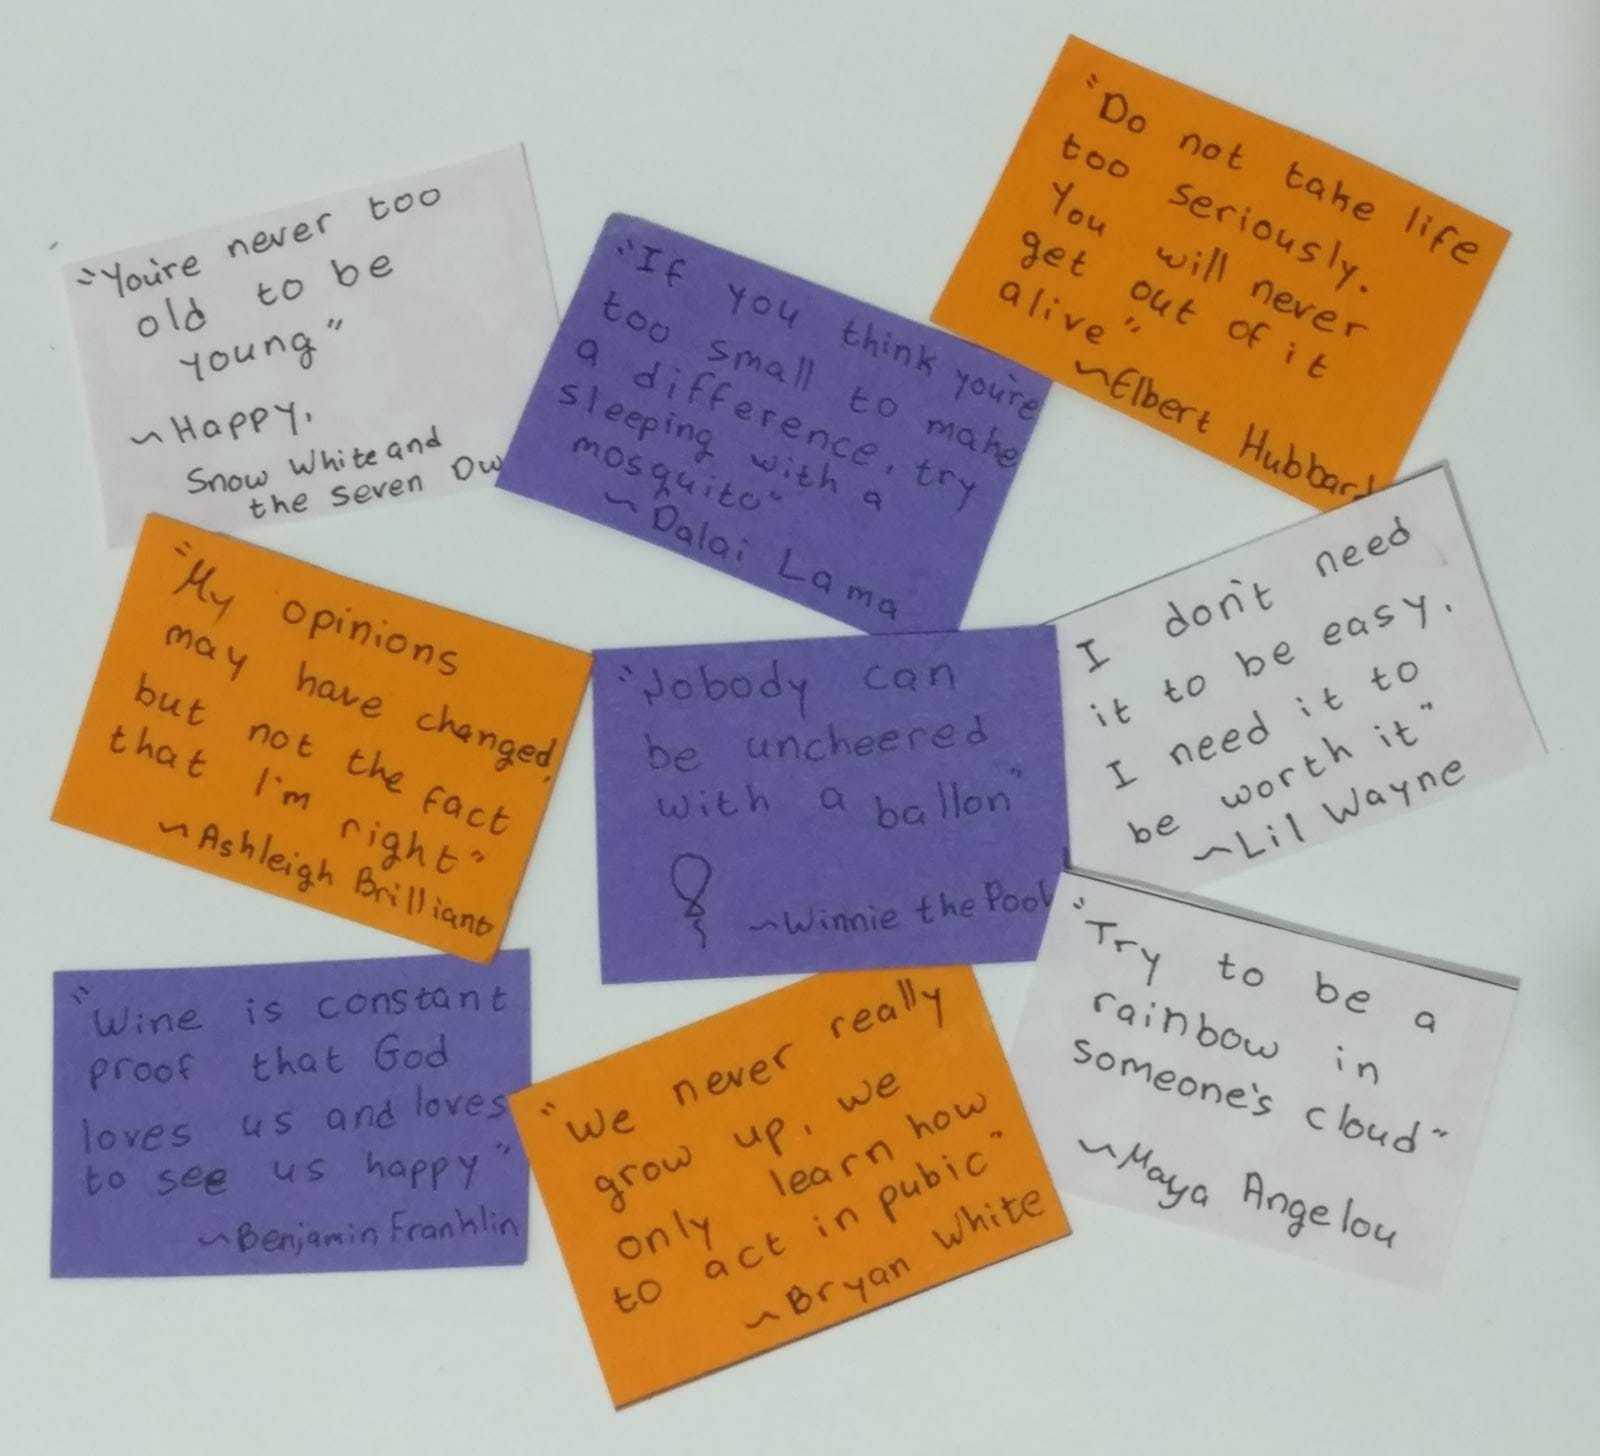 "You're never too
old to be
young"
~Happy,
Snow White and
the seven Dw
"If you think you're
too small to make
a difference, try
sleeping with a
mosquito"
~Dalai Lama
"Do not take life
too seriously.
You will never
get out of it
alive"
~Elbert Hubbard
"My opinions
may have changed,
but not the fact
that I'm right"
~Ashleigh Brilliant
"Nobody can
be uncheered
with a ballon"
~Winnie the Pooh
I don't need
it to be easy.
I need it to
be worth it"
~Lil Wayne
"Wine is constant
proof that God
loves us and loves
to see us happy"
~Benjamin Franklin
"We never really
grow up, we
only learn how
to act in pubic"
~Bryan White
"Try to be a
rainbow in
someone's cloud"
~Maya Angelou